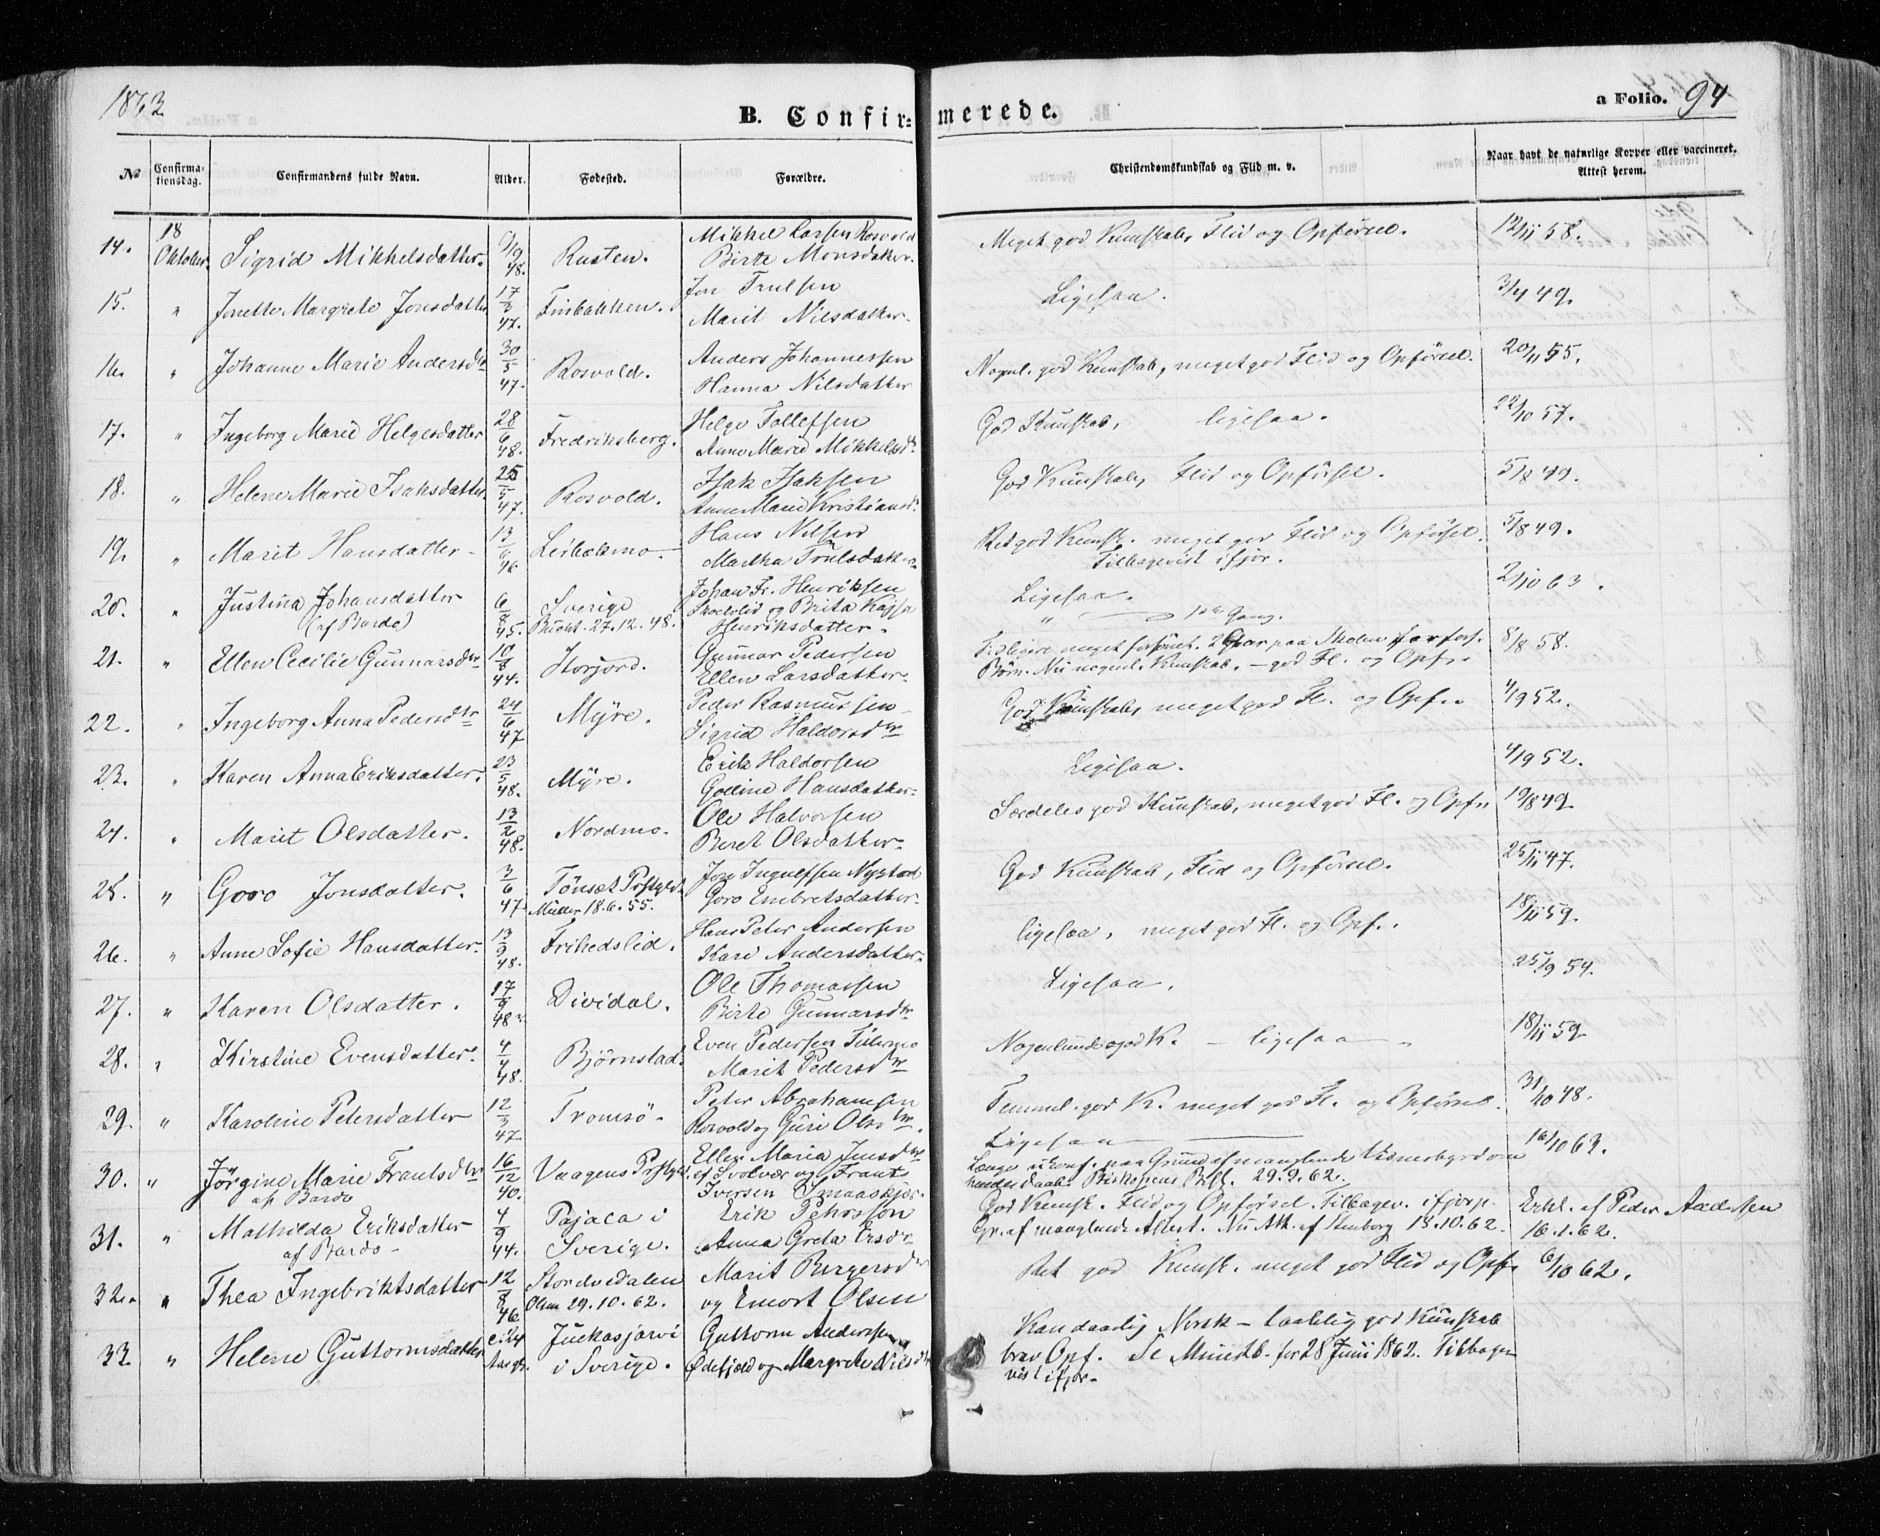 1863
B. Confirmerede.
a Folio. 94
No
Confirmationsdag.
Confirmandens fulde Navn.
Alder.
Fødested.
Forældre.
Christendomskundskab og Flid m. v.
Naar havt de naturlige Kopper eller vaccineret. Attest herom.
14. 18 Oktober Sigrid Mikkelsdatter. 9/9 48. Rusten. Mikkel Larsen Rosvold Birte Monsdatter. Meget god Kunskab, Flid og Opførsel. 12/11 58.
15. " Jonette Margrete Jonsdatter 17/3 47. Finbakken. Jon Trulsen Marit Nilsdatter. Ligesaa. 3/4 49.
16. " Johanne Marie Andersdtr 30/5 47. Rosvold. Anders Johannessen Hanna Nilsdatter Nogenl. god Kunskab, meget god Flid og Opførsel. 20/11 55.
17. " Ingeborg Marie Helgesdatter 28/6 48. Fredriksberg. Helge Tollefsen Anne Marie Mikkelsdtr God Kunskab, ligesaa. 22/10 57.
18. " Helene Marie Isaksdatter. 25/5 47. Rosvold. Isak Isaksen Anne Marie Kristiansdr God Kunskab, Flid og Opførsel. 5/8 49.
19. " Marit Hansdatter - 13/6 46. Leibaksmo. Hans Nilsen Martha Trulsdatter Ret god Kunsk. meget god Flid og Opførsel. Tilbagevist ifjor. 5/8 49.
20. " Justina Johansdatter (af Bardo) 6/8 45. Sverige 27.12.48. Johan Fr. Henriksen og Brita Kajsa Henriksdatter. Ligesaa. " 1ste Gang. 2/10 63.
21. " Ellen Cecilie Gunnarsdtr 10/8 44. Storjord. Gunnar Pedersen Ellen Larsdatter. Tidligere meget forsømt. 2 Aar paa Skolen for fors. Børn. Nu nogenl. Kunskab. - god Fl. og Opf. 8/8 58.
22. " Ingeborg Anna Pedersdtr 24/6 47 Myre. Peder Rasmussen Sigrid Haldorsdtr God Kunskab, meget god Fl. og Opf. 4/9 52.
23. " Karen Anna Eriksdatter. 23/5 48. Myre. Erik Haldorsen Goline Hansdatter. Ligesaa. 4/9 52.
24. " Marit Olsdatter. 13/2 48. Nordmo. Ole Halvorsen Beret Olsdatter. Særdeles god Kunskab, meget god Fl. og Opf. 19/8 49.
25. " Goro Jonsdatter. 3/6 47. Tönset Prstgjld. Müller 18.6.55. Jon Ingulfsen Nystad Goro Embretsdatter. God Kunskab, Flid og Opførsel. 25/11 47.
26. " Anne Sofie Hansdatter. 13/9 48. Frihedslid. Hans Peter Andersen Kari Andersdatter. ligesaa, meget god Fl. og Opf. 18/11 59.
27. " Karen Olsdatter. 17/9 48. Dividal. Ole Thomassen Birte Gunnarsdtr Ligesaa. 25/9 54.
28. " Kirstine Evensdatter. 4/4 48. Bjørnstad. Even Pedersen Marit Pedersdtr Nogenlunde god K. - ligesaa - 18/11 59
29. " Karoline Petersdatter 12/3 47. Tromsö. Peter Abrahamsen Rosvold og Guri Olsdtr. Temmel. god K. meget god Fl. og Opførsel. 31/10 48.
30. " Jörgine Marie Frantsdtr af Bardo 16/12 40. Vaagens Prstgjld. Ellen Maria Jensdtr af Svolvær og Frants Iversen Smaaskjær. Ligesaa Længe ukonf. paa Grund af manglende Vidnesbyrd om hendes Daab. Biskopens Befl. 29.9.62. 16/10 63.
31. " Mathilda Eriksdatter af Bardo - 4/9 44. Pajala i Sverige. Erik Pehrsson Anna Greta Ersdr God Kunsk. Flid og Opførsel. Tilbagev. ifjor p. Gr. af manglende Attest. Nu Att. af Stenborg 18.10.62. Erkl. af Peder Aadesen 16.1.62.
32. " Thea Ingebriktsdatter 12/8 46 Stordvedalen Olsen 29.10.62. Marit Birgersdtr og Emort Olsen Ret god Kunsk. meget god Flid og Opf. 6/10 62.
33. " Helene Guttormsdatter c. 24 Aar gl. Juckasjarvi i Sverige. Guttorm Andersen Ødefjeld og Margrete Nilsdtr Kan daarlig Norsk - taalelig god Kunskab brav Opf. Se Ministb. for 28 Juni 1862. Tilbagevist ifjor.